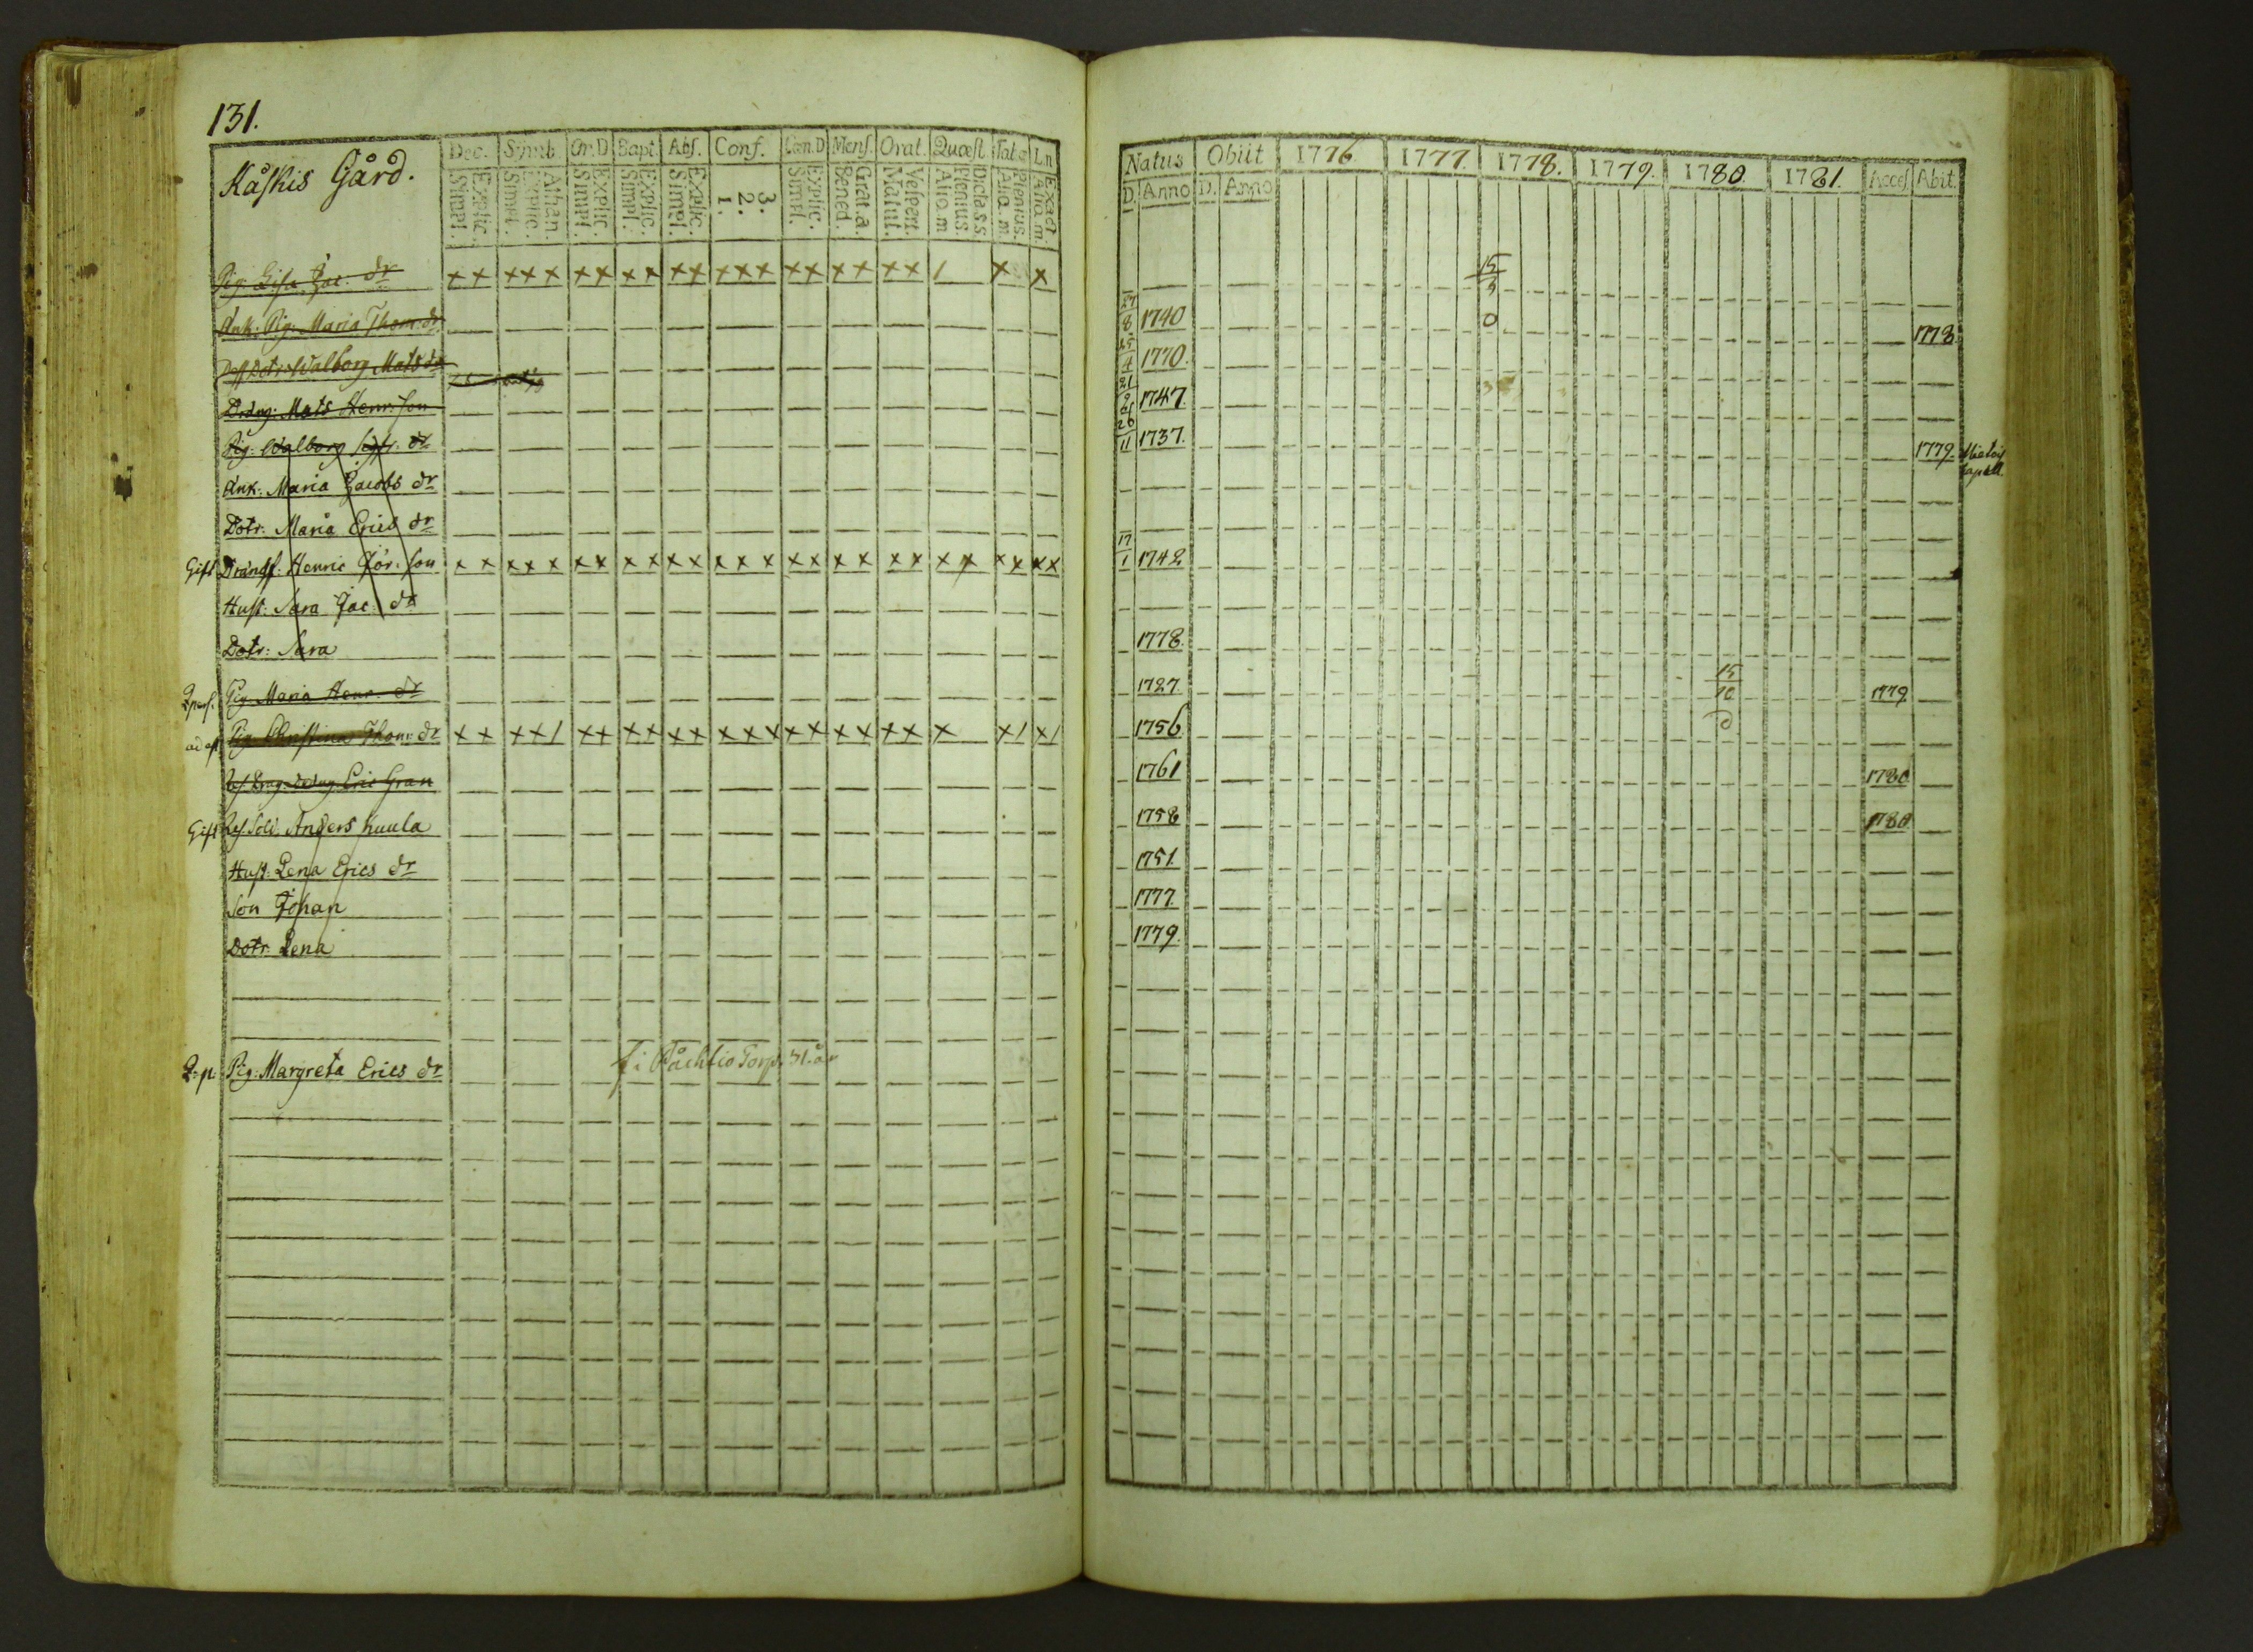 131.
Kåskis Gård.
Dec. Symb. Or.D Bapt. Abs. Conf. Cœn.D Mens. Orat. Quæst. Tab.œ Ln
Simpl. Explic. Simpl. Explic. Athan. Simpl. Explic. Simpl. Explic. Simpl. Explic. 1. 2. 3. Simpl. Explic. Bened. Grat. a. Matut. Vespert. Aliq.m Plenius. Dicta s.s. Aliq.m. Plenius. Aliq.m. Exact.
Pig. Lisa Jac. dr x x x x x x x x x x x x x x x x x x x x 1 x x
Enk. Pig. Maria Thom. dr
Dotr. Walborg Mats dr
Dräng: Mats Henr. son
Pig: Walborg Sigfr. dr
Enk: Maria Jacobs dr
Dotr: Maria Erics dr
Gift Drängs: Henric Jör. son x x x x x x x x x x x x x x x x x x x x x x x x x x
Hust: Sara Jac: dr
Dotr: Sara
Pig Maria Henr. dr
Pig. Christina Thom: dr x x x x 1 x x x x x x x x x x x x x x x x x x 1 x 1
Eric Gran
Gift Ref. Sold. Anders Kuula
Hust: Lena Erics dr
Son Johan
Dotr. Lena
Q. p. Pig: Margreta Erics dr f. i Torp. 31. år
Natus Obiit 1776. 1777. 1778. 1779. 1780. 1781. Acces. Abit.
D. Anno D. Anno
15/3
27/8 1740 0 1778.
25/4 1770.
21/9 1747.
26/11 1737. 1779. Capell.
17/1 1742
1778.
1727. 15/10 1779
1756 0
1761 1780
1758 1780
1751.
1777.
1779.